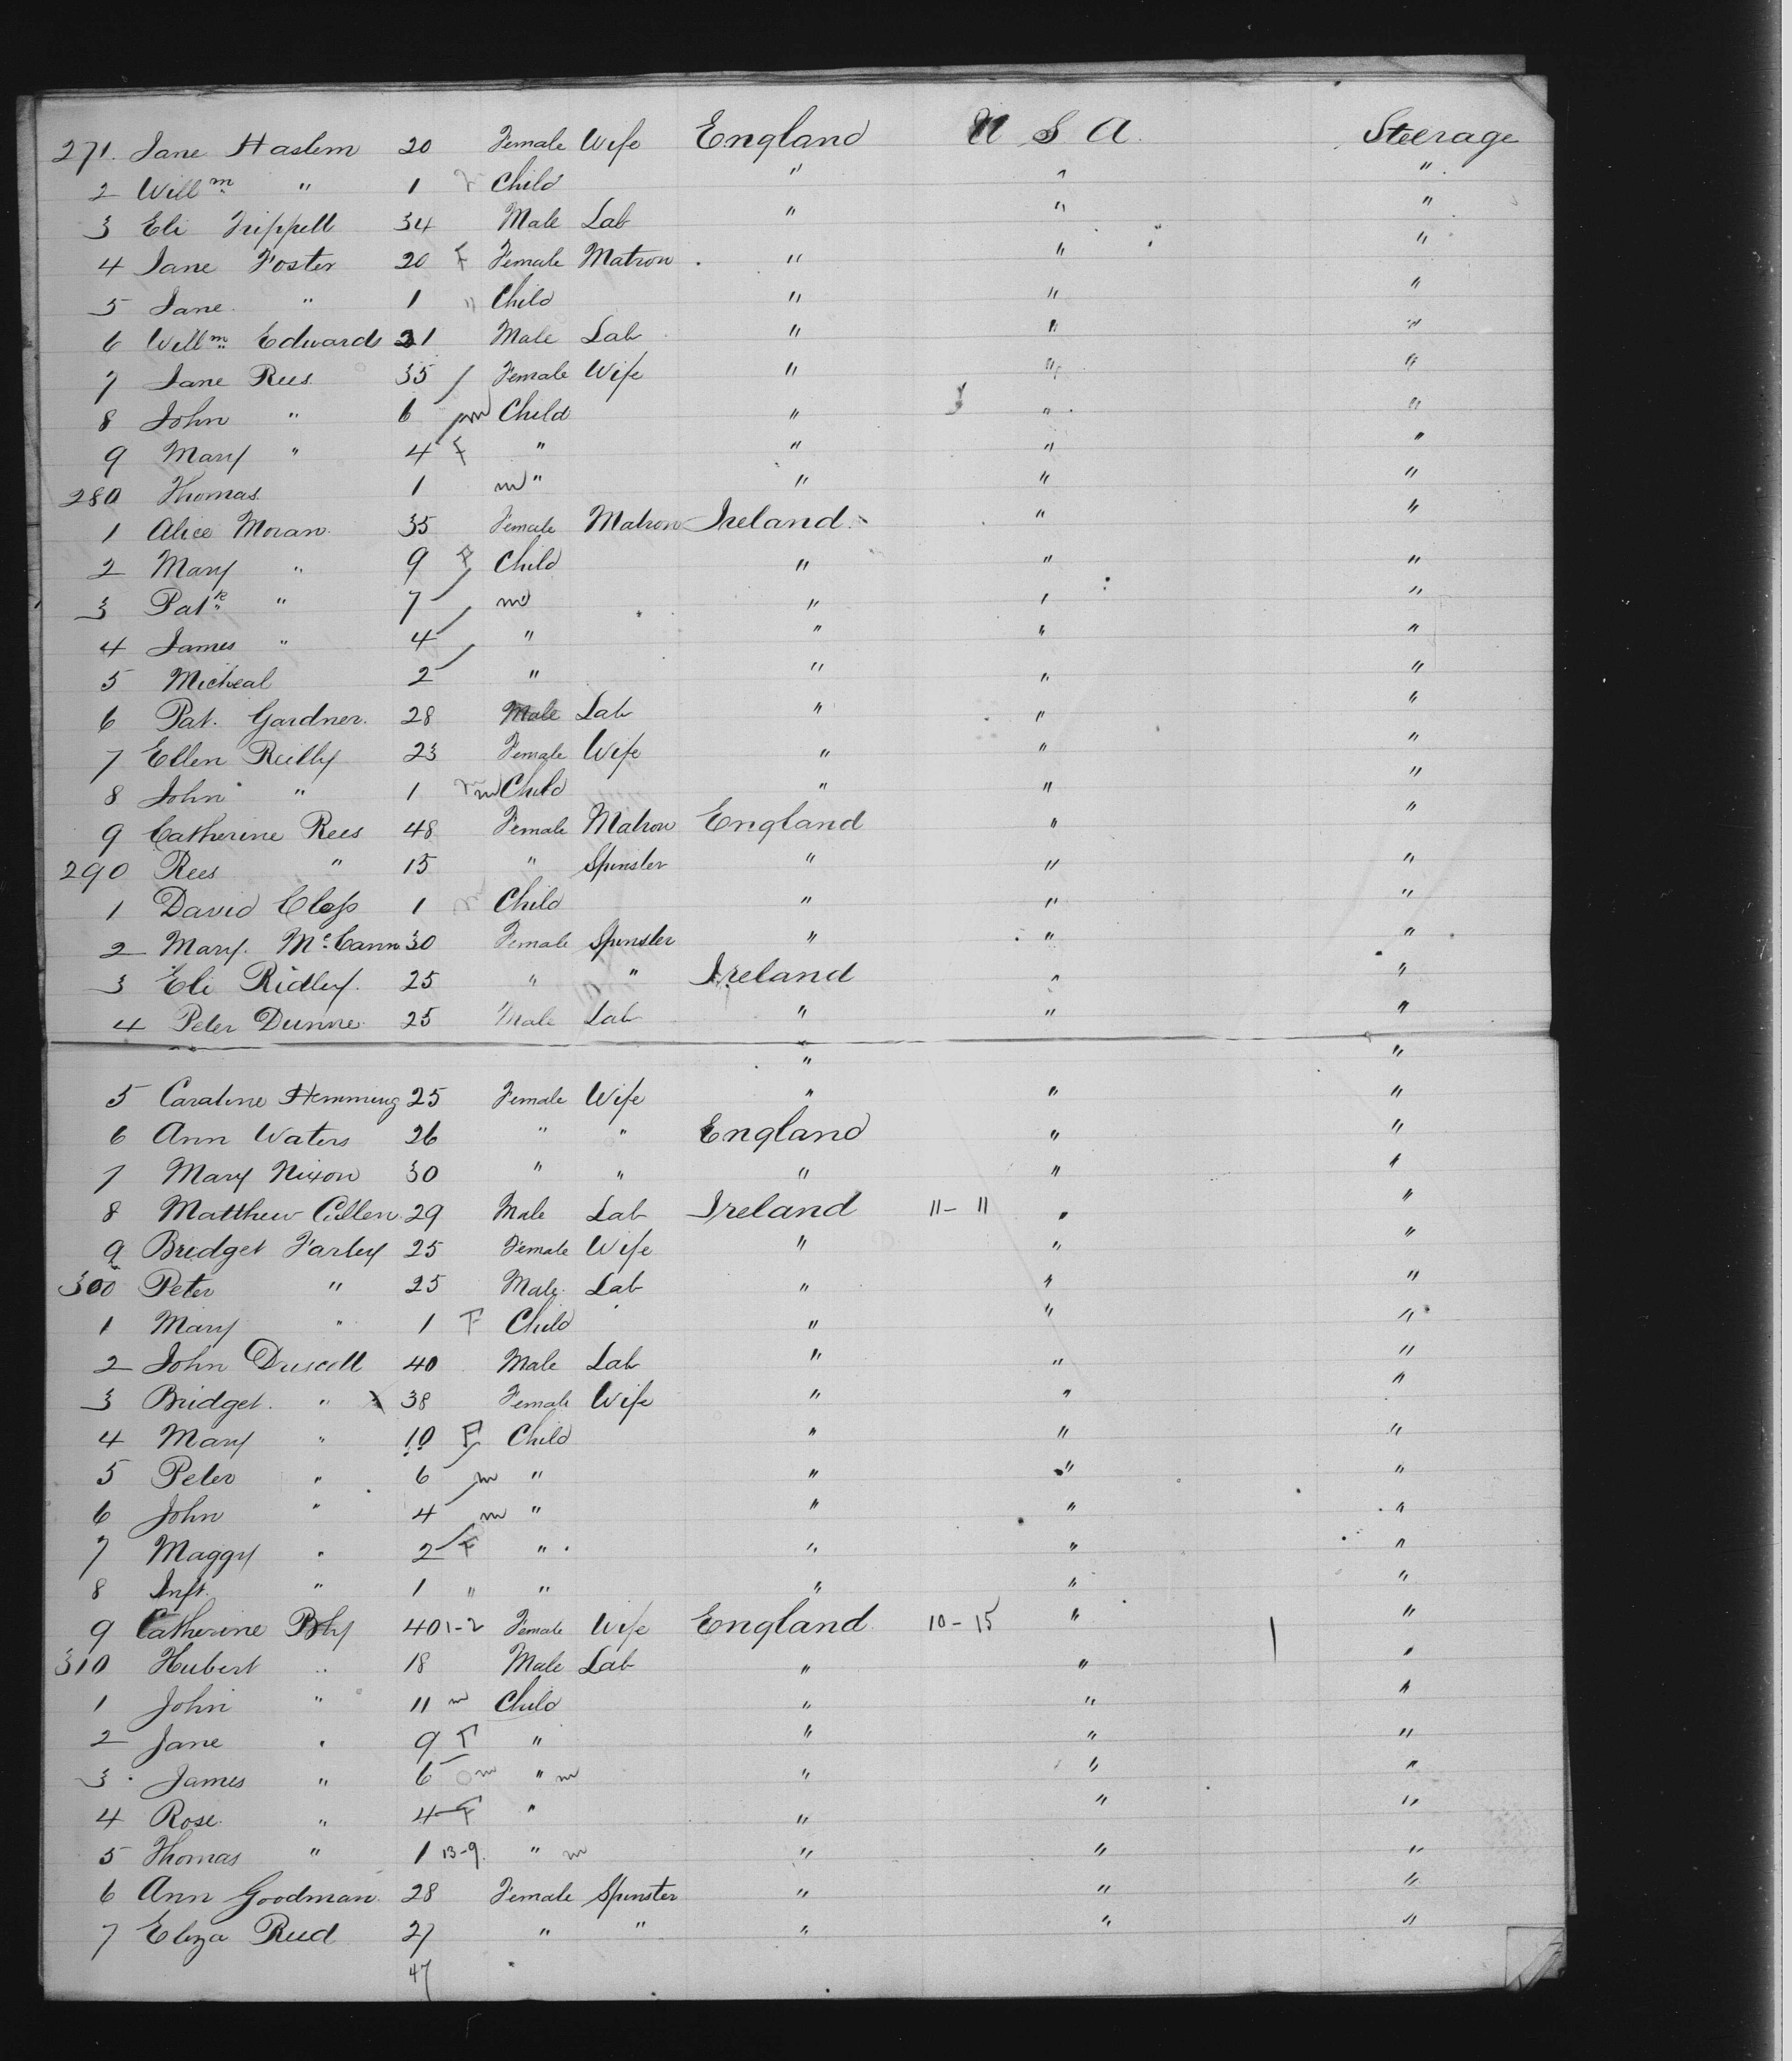 271. Jane Haslem 20 Female Wife England U S A. Steerage
2 Willm " 1 Child " " "
3 Eli Trippell 34 Male Lab " " "
4 Jane Foster 20 F Female Matron " " "
5 Jane " 1 " Child " " "
6 Willm Edwards 21 Male Lab " " "
7 Jane Rees 35 Female Wife " " "
8 John " 6 m Child " " "
9 Mary " 4 F " " " "
280 Thomas 1 m " " " "
1 Alice Moran 35 Female Matron Ireland " "
2 Mary " 9 F Child " " "
3 Patk " 7 m " " "
4 James " 4 " " " "
5 Micheal 2 " " " "
6 Pat. Gardner. 28 Male Lab " " "
7 Ellen Reilly 23 Female Wife " " "
8 John " 1 m Child " " "
9 Catherine Rees 48 Female Matron England " "
290 Rees " 15 " Spinster " " "
1 David 1 m Child " " "
2 Mary. McCann 30 Female Spinster " " "
3 Eli Ridley. 25 " " Ireland " "
4 Peter Dunne 25 Male Lab " " "
" "
5 Caraline Hemming 25 Female Wife " " "
6 Ann Waters 26 " " England " "
7 Mary Nixon 30 " " " " "
8 Matthew Cullen 29 Male Lab Ireland 11-11 " "
9 Bridget Farley 25 Female Wife " " "
300 Peter " 25 Male Lab " " "
1 Mary " 1 F Child " " "
2 John Driscoll 40 Male Lab " " "
3 Bridget. " 38 Female Wife " " "
4 Mary " 10 F Child " " "
5 Peter " 6 m " " " "
6 John " 4 m " " " "
7 Maggy " 2 F " " " "
8 Inft. " 1 " " " " "
9 Catherine 40 1-2 Female Wife England 10-15 " "
310 Hubert " 18 Male Lab " " "
1 John " 11 m Child " " "
2 Jane " 9 F " " " "
3 James " 6 m " m " " "
4 Rose " 4 F " " " "
5 Thomas " 1 13-9. " m " " "
6 Ann Goodman 28 Female Spinster " " "
7 Eliza Reed 27 " " " " "
47